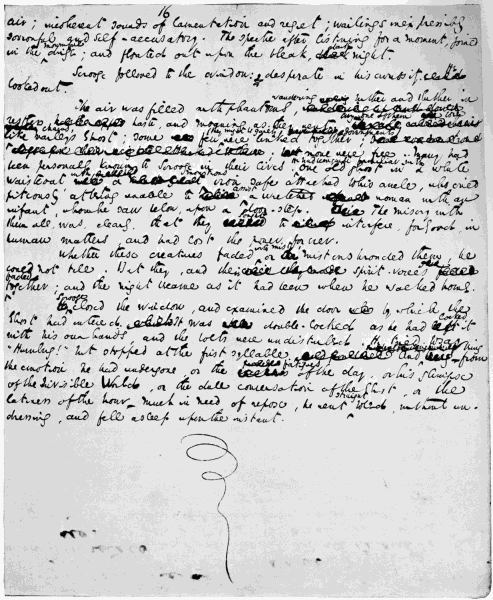 16
air; incoherent sounds of lamentation and regret; wailings inexpressibly
sorrowful and self-accusatory. The spectre after listening for a moment, joined
in the mournful dirge; and floated out upon the bleak, dark night.
Scrooge followed to the window: desperate in his curiosity. He
looked out.
The air was filled with phantoms, wandering hither and thither in
restless haste and moaning as they went. Every one of them wore chains
like Marley's Ghost; some few (they might be guilty governments) were linked together; none were free. Many had
been personally known to Scrooge in their lives. He had been quite familiar with one old ghost in a white
waistcoat with a monstrous iron safe attached to his ancle, who cried
piteously at being unable to assist a wretched woman with an
infant, whom he saw below, upon a door-step. The misery with
them all was, clearly, that they sought to interfere, for good, in
human matters, and had lost the power for ever.
Whether these creatures faded into mist, or mist enshrouded them, he
could not tell. But they, and their spirit voices faded
together; and the night became as it had been when he walked home.
Scrooge closed the window, and examined the door by which the
Ghost had entered. It was double-locked as he had locked it
with his own hands, and the bolts were undisturbed. He tried to say
"Humbug!" but stopped at the first syllable. And being, from
the emotion he had undergone, or the fatigues of the day, or his glimpse
of the Invisible World, or the dull conversation of the Ghost, or the
lateness of the hour, much in need of repose, he went straight to bed, without un-
dressing, and fell asleep upon the instant.